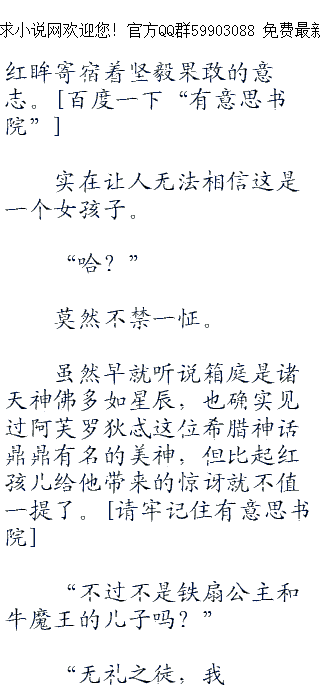 求小说网欢迎您！官方QQ群59903088 免费最新
红眸寄宿着坚毅果敢的意
志。[百度一下“有意思书
院”]
实在让人无法相信这是
一个女孩子。
“哈？”
莫然不禁一怔。
虽然早就听说箱庭是诸
天神佛多如星辰，也确实见
过阿芙罗狄忒这位希腊神话
鼎鼎有名的美神，但比起红
孩儿给他带来的惊讶就不值
一提了。[请牢记住有意思书
院]
“不过不是铁扇公主和
牛魔王的儿子吗？”
“无礼之徒，我